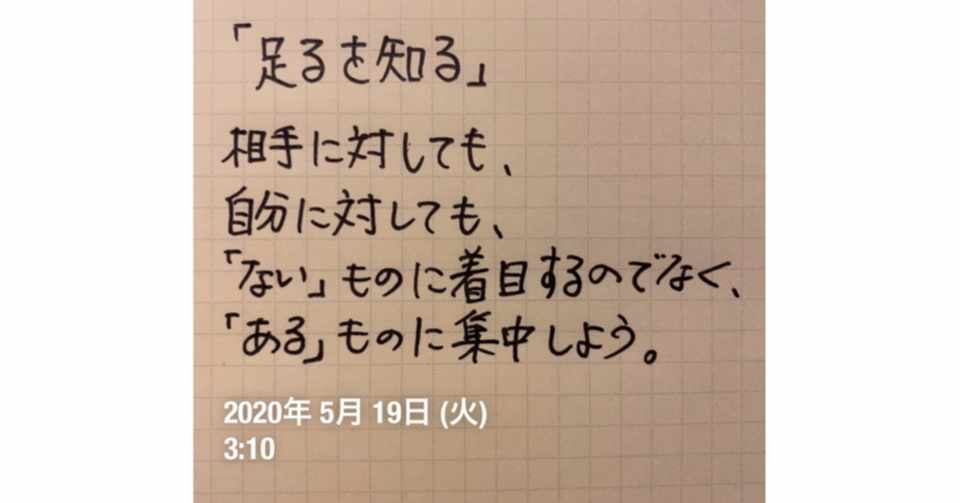 「足るを知る」
相手に対しても、
自分に対しても、
「ない」ものに着目するのでなく、
「ある」ものに集中しよう。
2020年 5月 19日 (火)
3:10